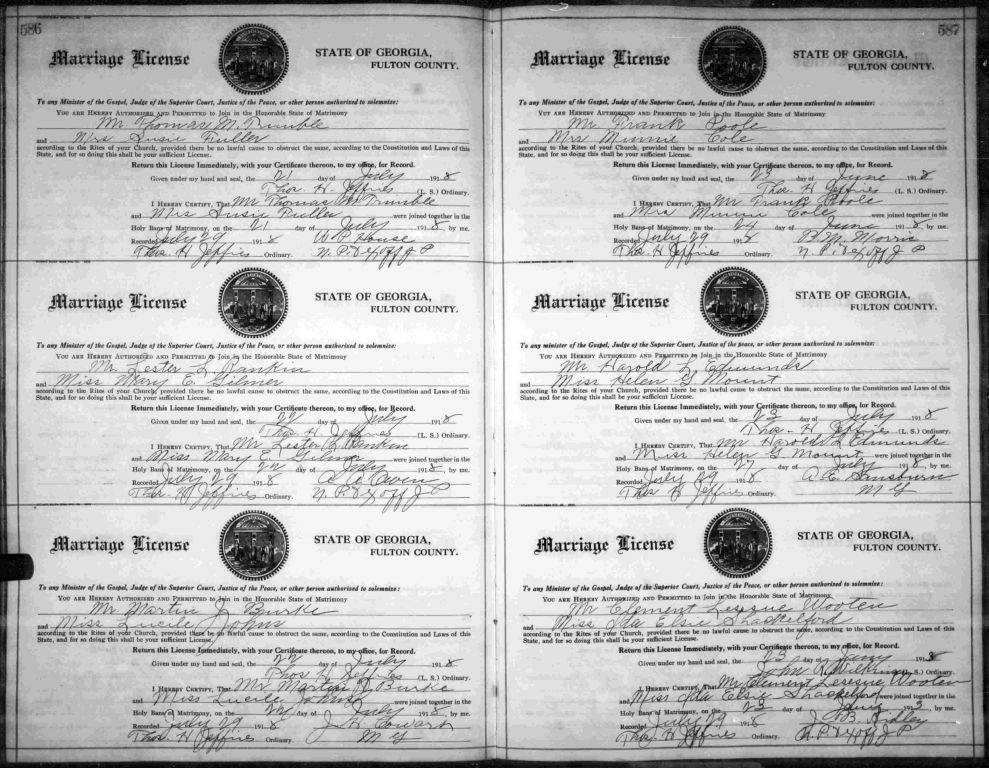 586
Marriage License
STATE OF GEORGIA,
FULTON COUNTY.
To any Minister of the Gospel, Judge of the Superior Court, Justice of the Peace, or other person authorized to solemnize:
YOU ARE HEREBY AUTHORIZED AND PERMITTED to Join in the Honorable State of Matrimony
Mr Thomas M. Trimble
and Mrs Susie Fuller
according to the Rites of your Church, provided there be no lawful cause to obstruct the same, according to the Constitution and Laws of this
State, and for so doing this shall be your sufficient License.
Return this License Immediately, with your Certificate thereon, to my office, for Record.
Given under my hand and seal, the 21 day of July 1918
Thos. H. Jeffries (L. S.) Ordinary.
I HEREBY CERTIFY, That Mr Thomas M Trimble
and Mrs Susie Fuller were joined together in the
Holy Bans of Matrimony, on the 21 day of July 1918, by me.
Recorded July 29 1918 W P House
Thos. H Jeffries Ordinary. N. P. & Ex off J P
Marriage License
STATE OF GEORGIA,
FULTON COUNTY.
To any Minister of the Gospel, Judge of the Superior Court, Justice of the peace, or other person authorized to solemnize:
YOU ARE HEREBY AUTHORIZED AND PERMITTED to Join in the Honorable State of Matrimony
Mr Lester L. Rankin
and Miss Mary E. Gilmer
according to the Rites of your Church, provided there be no lawful cause to obstruct the same, according to the Constitution and Laws of this
State, and for so doing this shall be your sufficient License.
Return this License Immediately, with your Certificate thereon, to my office, for Record.
Given under my hand and seal, the 22 day of July 1918
Thos H Jeffries (L. S.) Ordinary.
I HEREBY CERTIFY, That Mr Lester L Rankin
and Miss Mary E. Gilmer were joined together in the
Holy Bans of Matrimony, on the 22 day of July 1918, by me.
Recorded July 29 1918 Owen
Thos. H Jeffries Ordinary. N. P. & Ex off J P
Marriage License
STATE OF GEORGIA,
FULTON COUNTY.
To any Minister of the Gospel, Judge of the Superior Court, Justice of the Peace, or other person authorized to solemnize:
YOU ARE HEREBY AUTHORIZED AND PERMITTED to Join in the Honorable State of Matrimony
Mr Martin J Burke
and Miss Lucile Johns
according to the Rites of your Church, provided there be no lawful cause to obstruct the same, according to the Constitution and Laws of this
State, and for so doing this shall be your sufficient License.
Return this License Immediately, with your Certificate thereon, to my office, for Record.
Given under my hand and seal, the 22 day of July 1918
Thos H Jeffries (L. S.) Ordinary.
I HEREBY CERTIFY, That Mr Martin J Burke
and Miss Lucile Johns were joined together in the
Holy Bans of Matrimony, on the day of July 1918, by me.
Recorded July 29 1918 J. H. Cowart
Thos. H Jeffries Ordinary. M G
587
Marriage License
STATE OF GEORGIA,
FULTON COUNTY.
To any Minister of the Gospel, Judge of the Superior Court, Justice of the Peace, or other person authorized to solemnize:
YOU ARE HEREBY AUTHORIZED AND PERMITTED to Join in the Honorable State of Matrimony
Mr Frank Poole
and Mrs Minnie Cole
according to the Rites of your Church, provided there be no lawful cause to obstruct the same, according to the Constitution and Laws of this
State, and for so doing this shall be your sufficient License.
Return this License Immediately, with your Certificate thereon, to my office, for Record.
Given under my hand and seal, the 23 day of June 1918
Thos. H Jeffries (L. S.) Ordinary.
I HEREBY CERTIFY, That Mr Frank Poole
and Mrs Minnie Cole were joined together in the
Holy Bans of Matrimony, on the 24 day of June 1918, by me.
Recorded July 29 1918 B. M. Morris
Thos. H Jeffries Ordinary. N. P. & Ex off J P
Marriage License
STATE OF GEORGIA,
FULTON COUNTY.
To any Minister of the Gospel, Judge of the Superior Court, Justice of the peace, or other person authorized to solemnize:
YOU ARE HEREBY AUTHORIZED AND PERMITTED to Join in the Honorable State of Matrimony
Mr Harold L Edmunds
and Miss Helen G Mount
according to the Rites of your Church, provided there be no lawful cause to obstruct the same, according to the Constitution and Laws of this
State, and for so doing this shall be your sufficient License.
Return this License Immediately, with your Certificate thereon, to my office, for Record.
Given under my hand and seal, the 23 day of July 1918
Thos. H Jeffries (L. S.) Ordinary.
I HEREBY CERTIFY, That Mr Harold L Edmunds
and Miss Helen G Mount were joined together in the
Holy Bans of Matrimony, on the 27 day of July 1918, by me.
Recorded July 29 1918 A. E. Sansburn
Thos H Jeffries Ordinary. M G
Marriage License
STATE OF GEORGIA,
FULTON COUNTY.
To any Minister of the Gospel, Judge of the Superior Court, Justice of the Peace, or other person authorized to solemnize:
YOU ARE HEREBY AUTHORIZED AND PERMITTED to Join in the Honorable State of Matrimony
Mr Clement Lessue Wooten
and Miss Ida Elsie Shackelford
according to the Rites of your Church, provided there be no lawful cause to obstruct the same, according to the Constitution and Laws of this
State, and for so doing this shall be your sufficient License.
Return this License Immediately, with your Certificate thereon, to my office, for Record.
Given under my hand and seal, the 23 day of Jany 191
John R. Wilkinson (L. S.) Ordinary.
I HEREBY CERTIFY, That Mr Clement Lessue Wooten
and Miss Ida Elsie Shackelford were joined together in the
Holy Bans of Matrimony, on the 23 day of Jany 1913, by me.
Recorded July 29 1918 J. B. Ridley
Thos. H Jeffries Ordinary. N. P. & Ex off J P